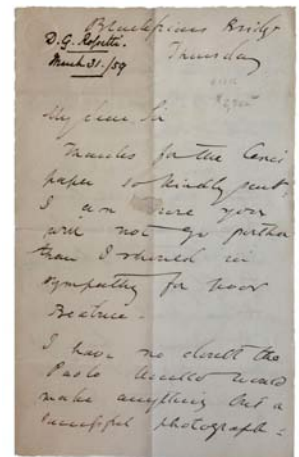 Blackfriars Bridge
D. G. Rossetti.
March 31./59
Thursday
My dear Sir
Thanks for the Cenci
paper so kindly sent.
I am sure you
will not go further
than I should in
sympathy for poor
Beatrice.
I have no doubt the
Paolo Uccello would
make anything but a
successful photograph: